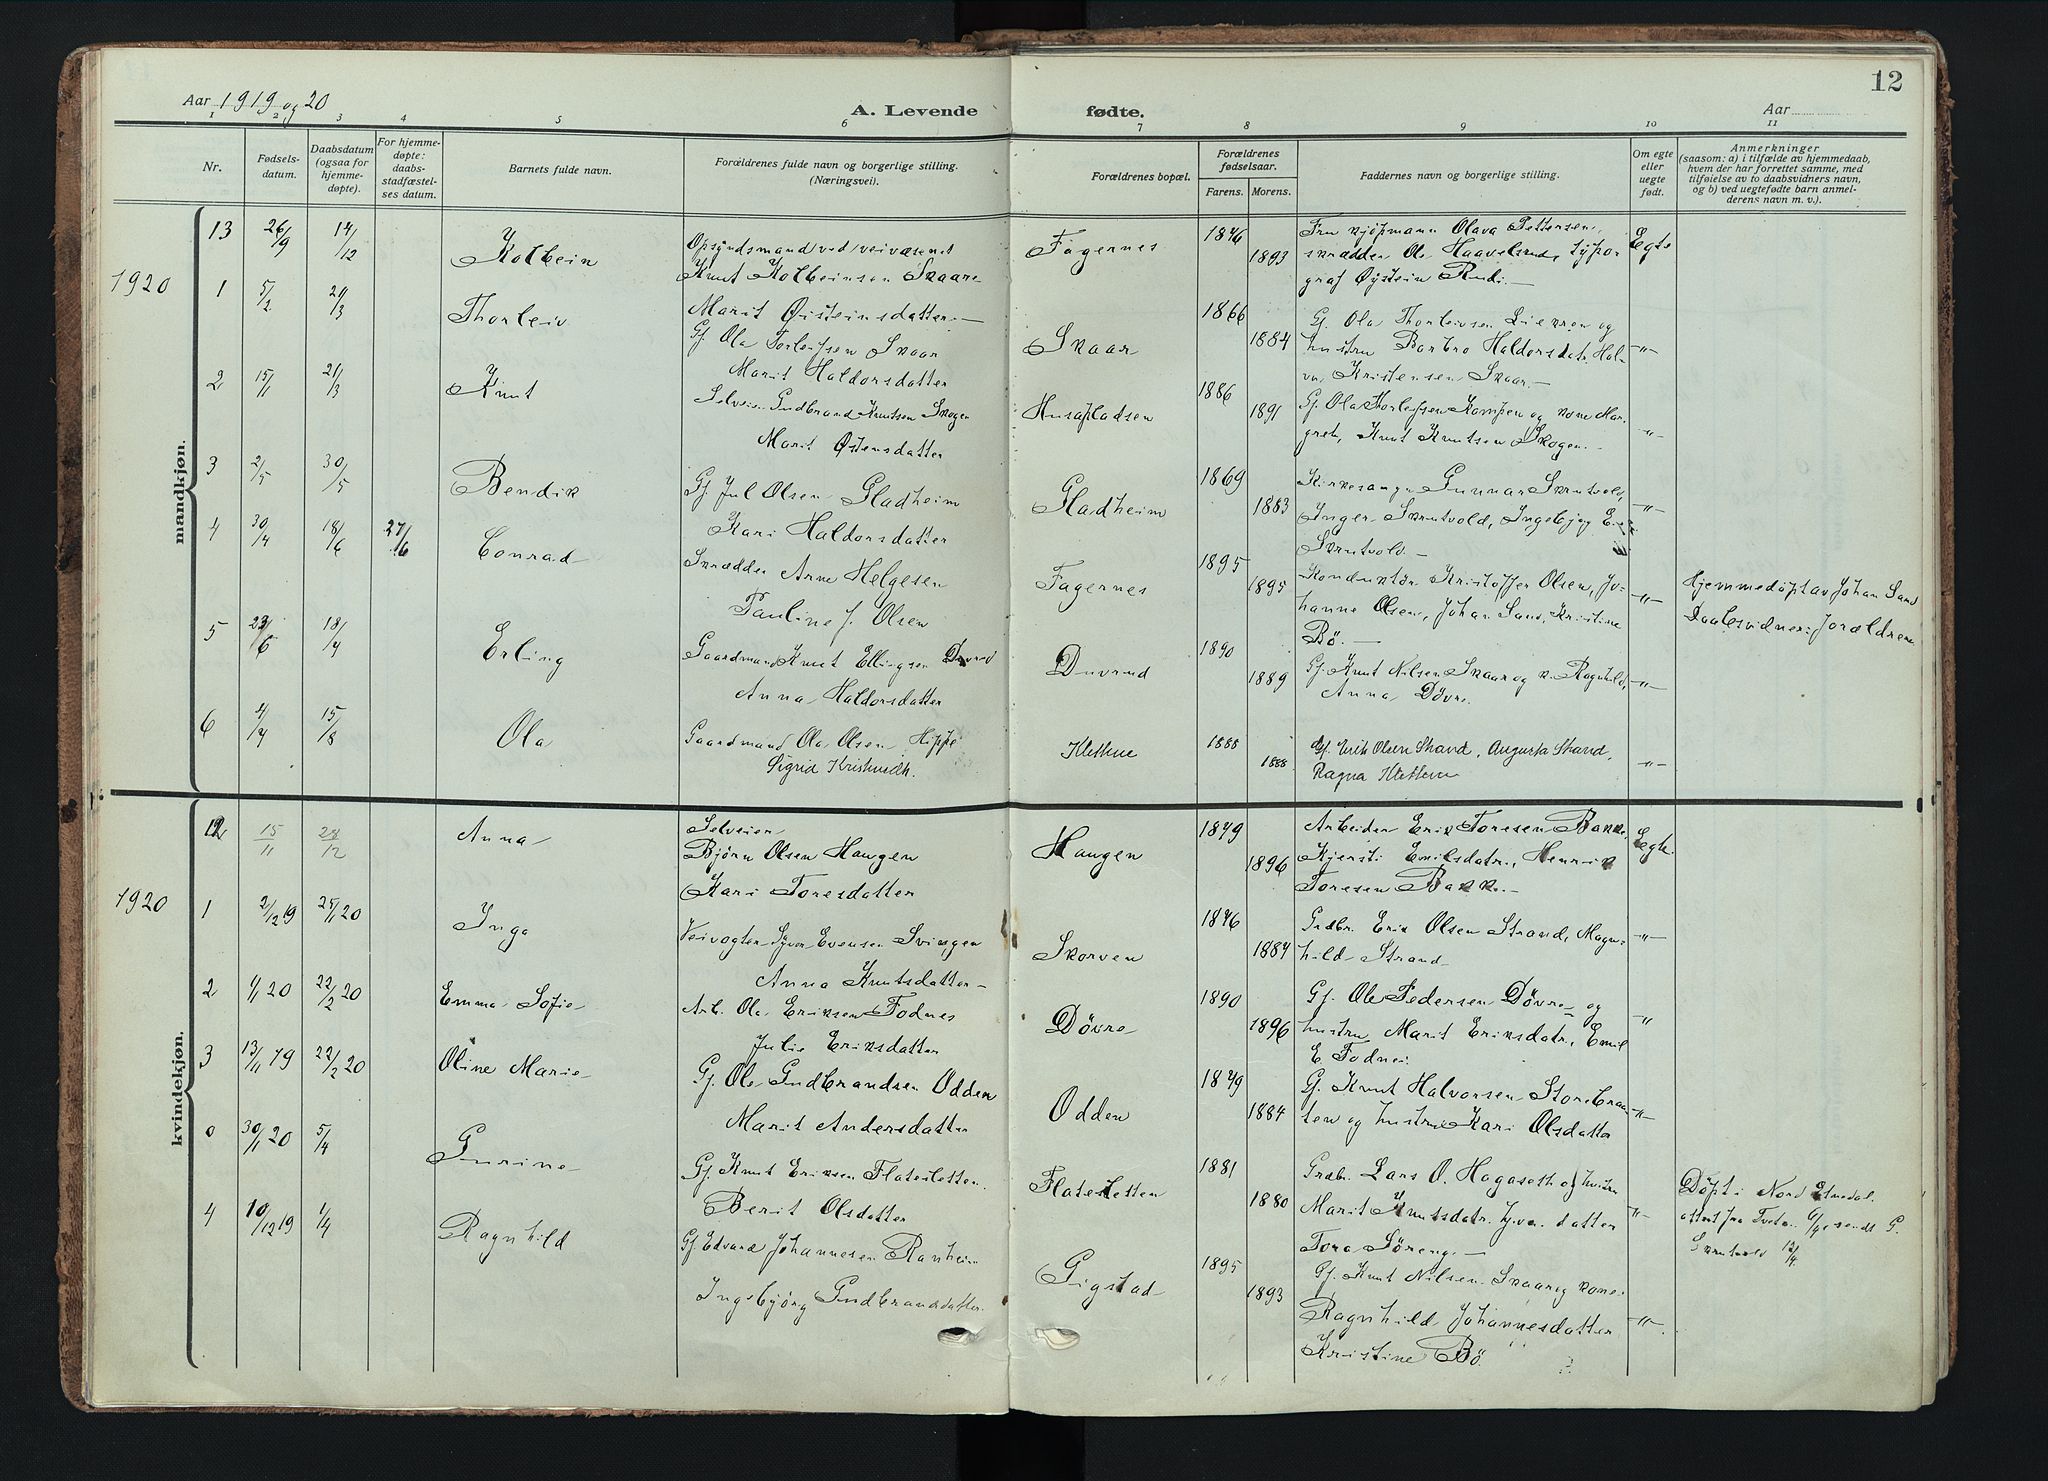 12
Aar 1919 og 20
A. Levende fødte.
Aar
1 2 3 4 5 6 7 8 9 10 11
Nr.
Fødsels-
datum.
Daabsdatum
(ogsaa for
hjemme-
døpte).
For hjemme-
døpte:
daabs-
stadfæstel-
ses datum.
Barnets fulde navn.
Forældrenes fulde navn og borgerlige stilling.
(Næringsvei).
Forældrenes bopæl.
Forældrenes
fødselsaar.
Farens. Morens.
Faddernes navn og borgerlige stilling.
Om egte
eller
uegte
født.
Anmerkninger
(saasom: a) i tilfælde av hjemmedaab,
hvem der har forrettet samme, med
tilføielse av to daabsvidners navn,
og b) ved uegtefødte barn anmel-
derens navn m. v.).
mandkjøn.
13 26/9 14/12 Kolbein
Opsyndsmand ved veivæsenet
Knut Kolbeinsen Skaare
Marit Øisteinsdatter.
Fagernes 1876 1893
Fru kjøpmann Olava Pettersen,
skrædder Ole Haavelsrud, typo-
graf Øystein Rudi.
Egte
1920
1 5/2 21/3 Thorleiv
Gj. Ola Torleifsen Skaar
Marit Haldorsdatter
Skaar 1866 1884
Gj. Ola Thorleivsen Liekren og
hustru Barbro Haldorsdatr. Hal-
Kristensen Skaar.
-"-
2 15/1 21/3 Knut
Selveier Gudbrand Knutsen Skogen
Marit Østensdatter
Husapladsen 1886 1891
Gj. Ola Thorleifsen Kampen og kone Mar-
gret, Knut Knutsen Skogen.
-"-
3 2/5 30/5 Bendik
Gj. Jul Olsen Gladheim
Kari Haldorsdatter
Gladheim 1869 1883
Kirkesanger Gunnar Skrutvold,
Inger Skrutvold, Ingebjøg
Skrutvold
-"-
4 30/4 18/6 27/6 Conrad
Skrædder Arne Helgesen
Pauline J. Olsen
Fagernes 1895 1895
Konduktør Kristoffer Olsen, Jo-
hanne Olsen, Johan Sand, Kristine
Bø.
-"-
Hjemmedøpt av Johan Sand
Daabsvidner: Forældrene
5 23/6 18/7 Erling
Gaardmand Knut Ellingsen Duvrud
Anna Haldorsdatter
Duvrud 1890 1889
Gj. Knut Nilsen Skaar og k. Ragnhild,
Anna Døvre.
-"-
6 4/7 15/8 Ola
Gaardmand Ola Olsen Hippe
Sigrid Kristensdtr.
Klethue 1888 1888
Gj. Erik Olsen Strand, Augusta Strand,
Ragna Kletten
-"-
kvindekjøn.
12 15/11 28/12 Anna
Selveier
Bjørn Olsen Haugen
Kari Toresdatter
Haugen 1879 1896
Arbeider Erik Toresen Bakke,
Kjersti Emilsdatr., Henrik
Toresen Bakke.
Egte.
1920
1 2/12 19 25/1 20 Inga
Veivogter Syver Evensen Svingen
Anna Knutsdatter
Skorven 1876 1884
Grdbr. Erik Olsen Strand, Magn-
hild Strand
-"-
2 1/1 20 22/2 20 Emma Sofie
Arb. Ola Eriksen Fodnes
Julie Eriksdatter
Døvre 1890 1896
Gj. Ole Pedersen Døvre og
hustru Marit Eriksdatr., Emil
E. Fodnes
-"-
3 13/11 19 22/2 20 Oline Marie
Gj. Ole Gudbrandsen Odden
Marit Andersdatter
Odden 1879 1884
Gj. Knut Halvorsen Storebraa-
ten og hustru Kari Olsdatter
-"-
0 30/1 20 5/4 Gurine
Gj. Knut Eriksen Flatesletten.
Berit Olsdatter
Flatesletten 1881 1880
Grdbr. Lars O. Hagaseth og hustru
Marit Knutsdatr. datter
Tora Søreng.
-"-
Døpt i Nord Etnedal.
attest fra 6/4 sendt G.
Skrutvold 13/4
4 10/12 19 1/4 Ragnhild
Gj. Edvard Johannesen Ranheim
Ingebjørg Gudbrandsdatter
Gigstad 1895 1893
Gj. Knut Nilsen Skaar og kone
Ragnhild Johannesdatter
Kristine Bø
-"-